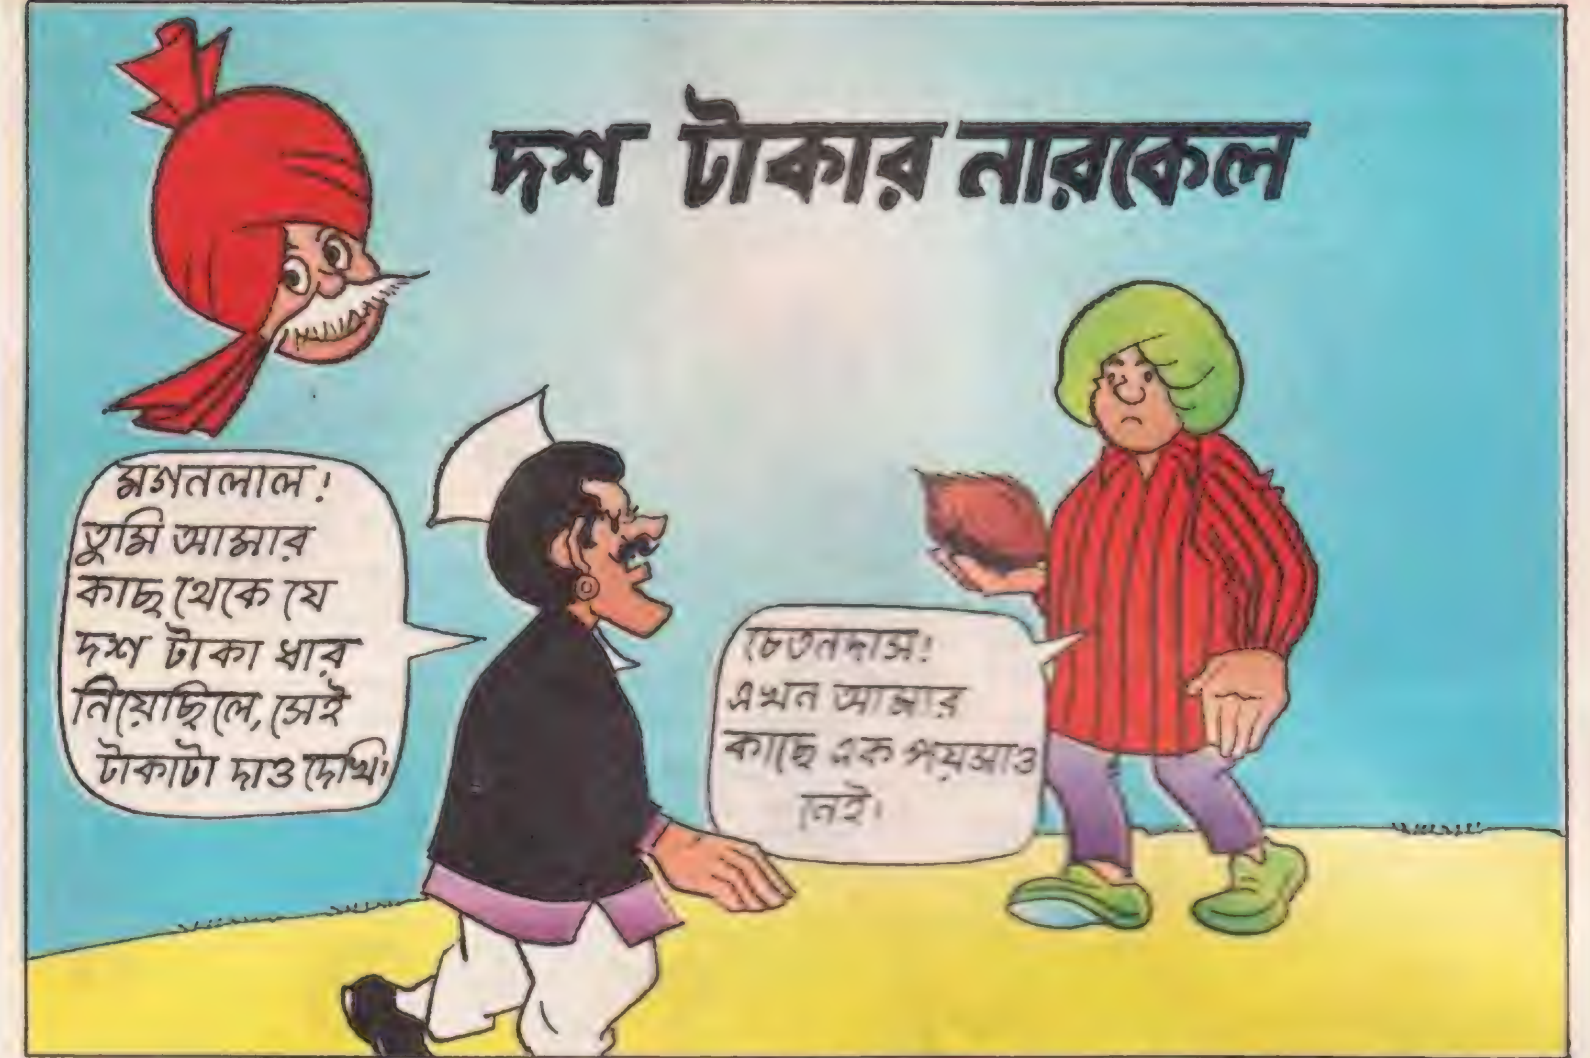 দশ টাকার নারকেল
মগনলাল!
তুমি আমার
কাছ থেকে যে
দশ টাকা ধার
নিয়েছিলে, সেই
টাকাটা দাও দেখি।
চেতনদাস!
এখন আমার
কাছে এক পয়সাও
নেই।